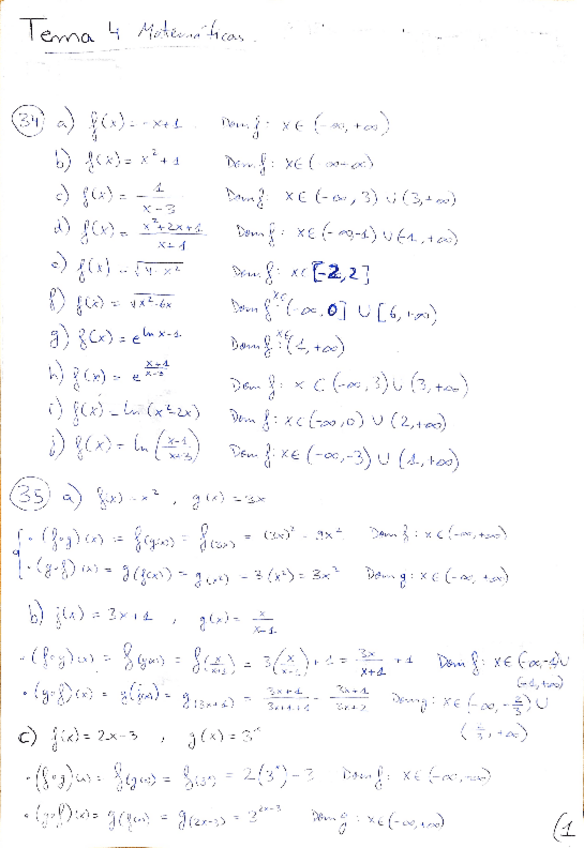 Tema 4 Matemáticas.
34 a) f(x) = -x+1 Dom f: x∈(-∞,+∞)
b) f(x) = x²+1 Dom f: x∈(-∞+∞)
c) f(x) = 1/(x-3) Dom f: x∈(-∞, 3) ∪ (3,+∞)
d) f(x) = (x²+2x+1)/(x+1) Dom f: x∈(-∞-1) ∪ (-1,+∞)
e) f(x) = √(4-x²) Dom f: x∈[-2,2]
f) f(x) = √(x²-6x) Dom f: x∈(-∞,0] ∪ [6,+∞)
g) f(x) = e^(ln x-1) Dom f: x∈(1,+∞)
h) f(x) = e^((x+1)/(x-3)) Dom f: x∈(-∞,3)∪(3,+∞)
i) f(x) = ln(x²-2x) Dom f: x∈(-∞,0) ∪ (2,+∞)
j) f(x) = ln((x-1)/(x+3)) Dom f: x∈(-∞,-3) ∪ (1,+∞)
35 a) f(x) = x² , g(x) = 3x
· (f∘g)(x) = f(g(x)) = f(3x) = (3x)² = 9x² Dom f: x∈(-∞,+∞)
· (g∘f)(x) = g(f(x)) = g(x²) = 3(x²) = 3x² Dom g: x∈(-∞,+∞)
b) f(x) = 3x+1 , g(x) =
- (f∘g)(x) = f(g(x)) = = 3x/(x+1) + 1 Dom f: x∈(-∞,-1)∪
(-1,+∞)
· (g∘f)(x) = g(f(x)) = g(3x+1) = (3x+1)/(3x+1+1) = (3x+1)/(3x+2) Dom g: x∈(-∞,-2/3)∪
c) f(x) = 2x-3 , g(x) = 3ˣ
- (f∘g)(x) = f(g(x)) = f(3ˣ) = 2(3ˣ)-3 Dom f: x∈(-∞,+∞)
· (g∘f)(x) = g(f(x)) = g(2x-3) = 3^(2x-3) Dom g: x∈(-∞,+∞)
(1